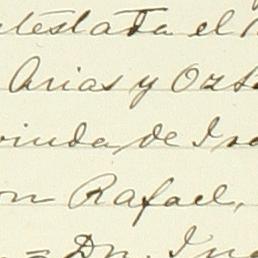 testada el
Arias y Oz
viuda de
on Rafael,
= Dn.